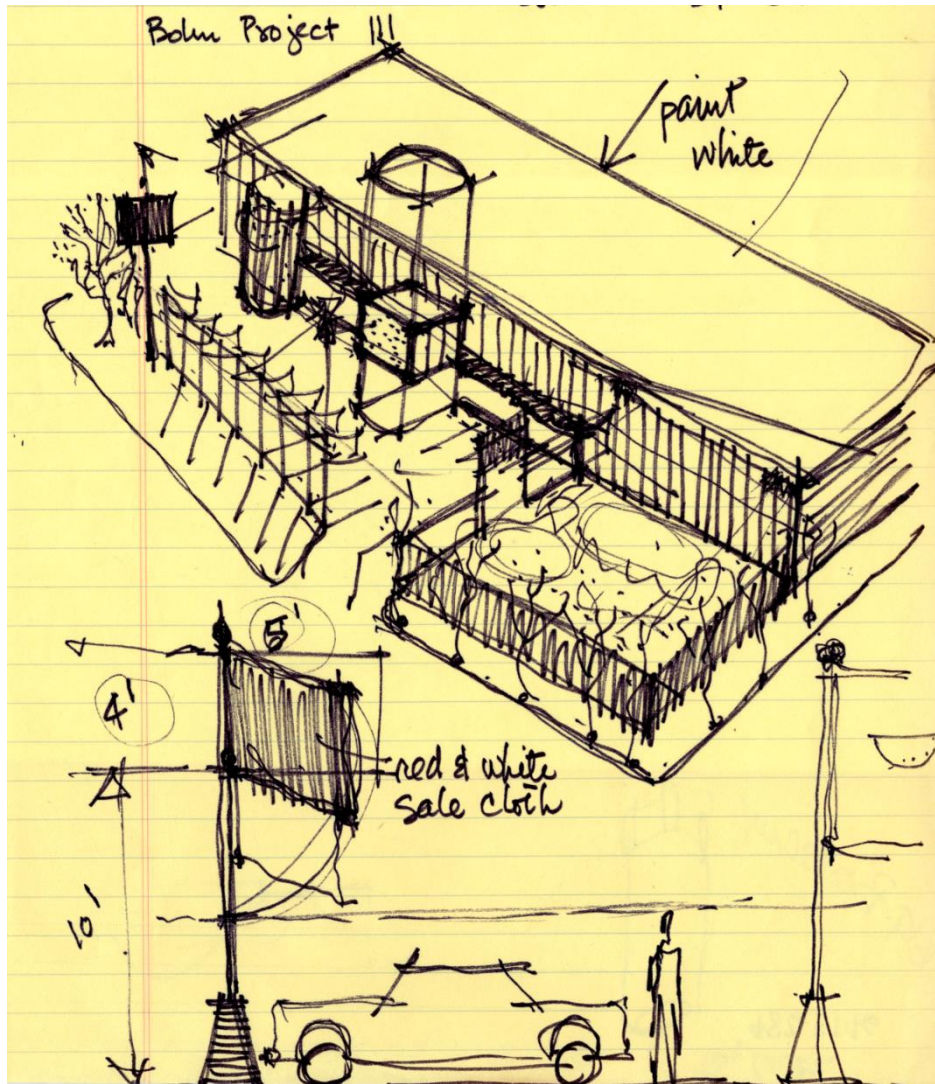 Bohn Project !!!
paint
white
5'
4'
red & white
sale cloth
10'